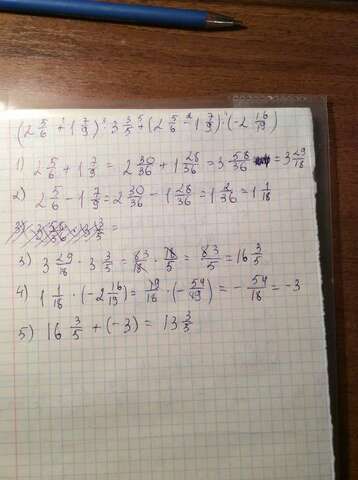 (2 5/6 + 1 7/9) · 3 3/5 + (2 5/6 - 1 7/9) · (-2 16/19)
1) 2 5/6 + 1 7/9 = 2 30/36 + 1 28/36 = 3 58/36 = 3 29/18
2) 2 5/6 - 1 7/9 = 2 30/36 - 1 28/36 = 1 2/36 = 1 1/18
3) 3 29/18 · 3 3/5 = 83/18 · 18/5 = 83/5 = 16 3/5
4) 1 1/18 · (-2 16/19) = 19/18 · (- 54/19) = - 54/18 = -3
5) 16 3/5 + (-3) = 13 3/5